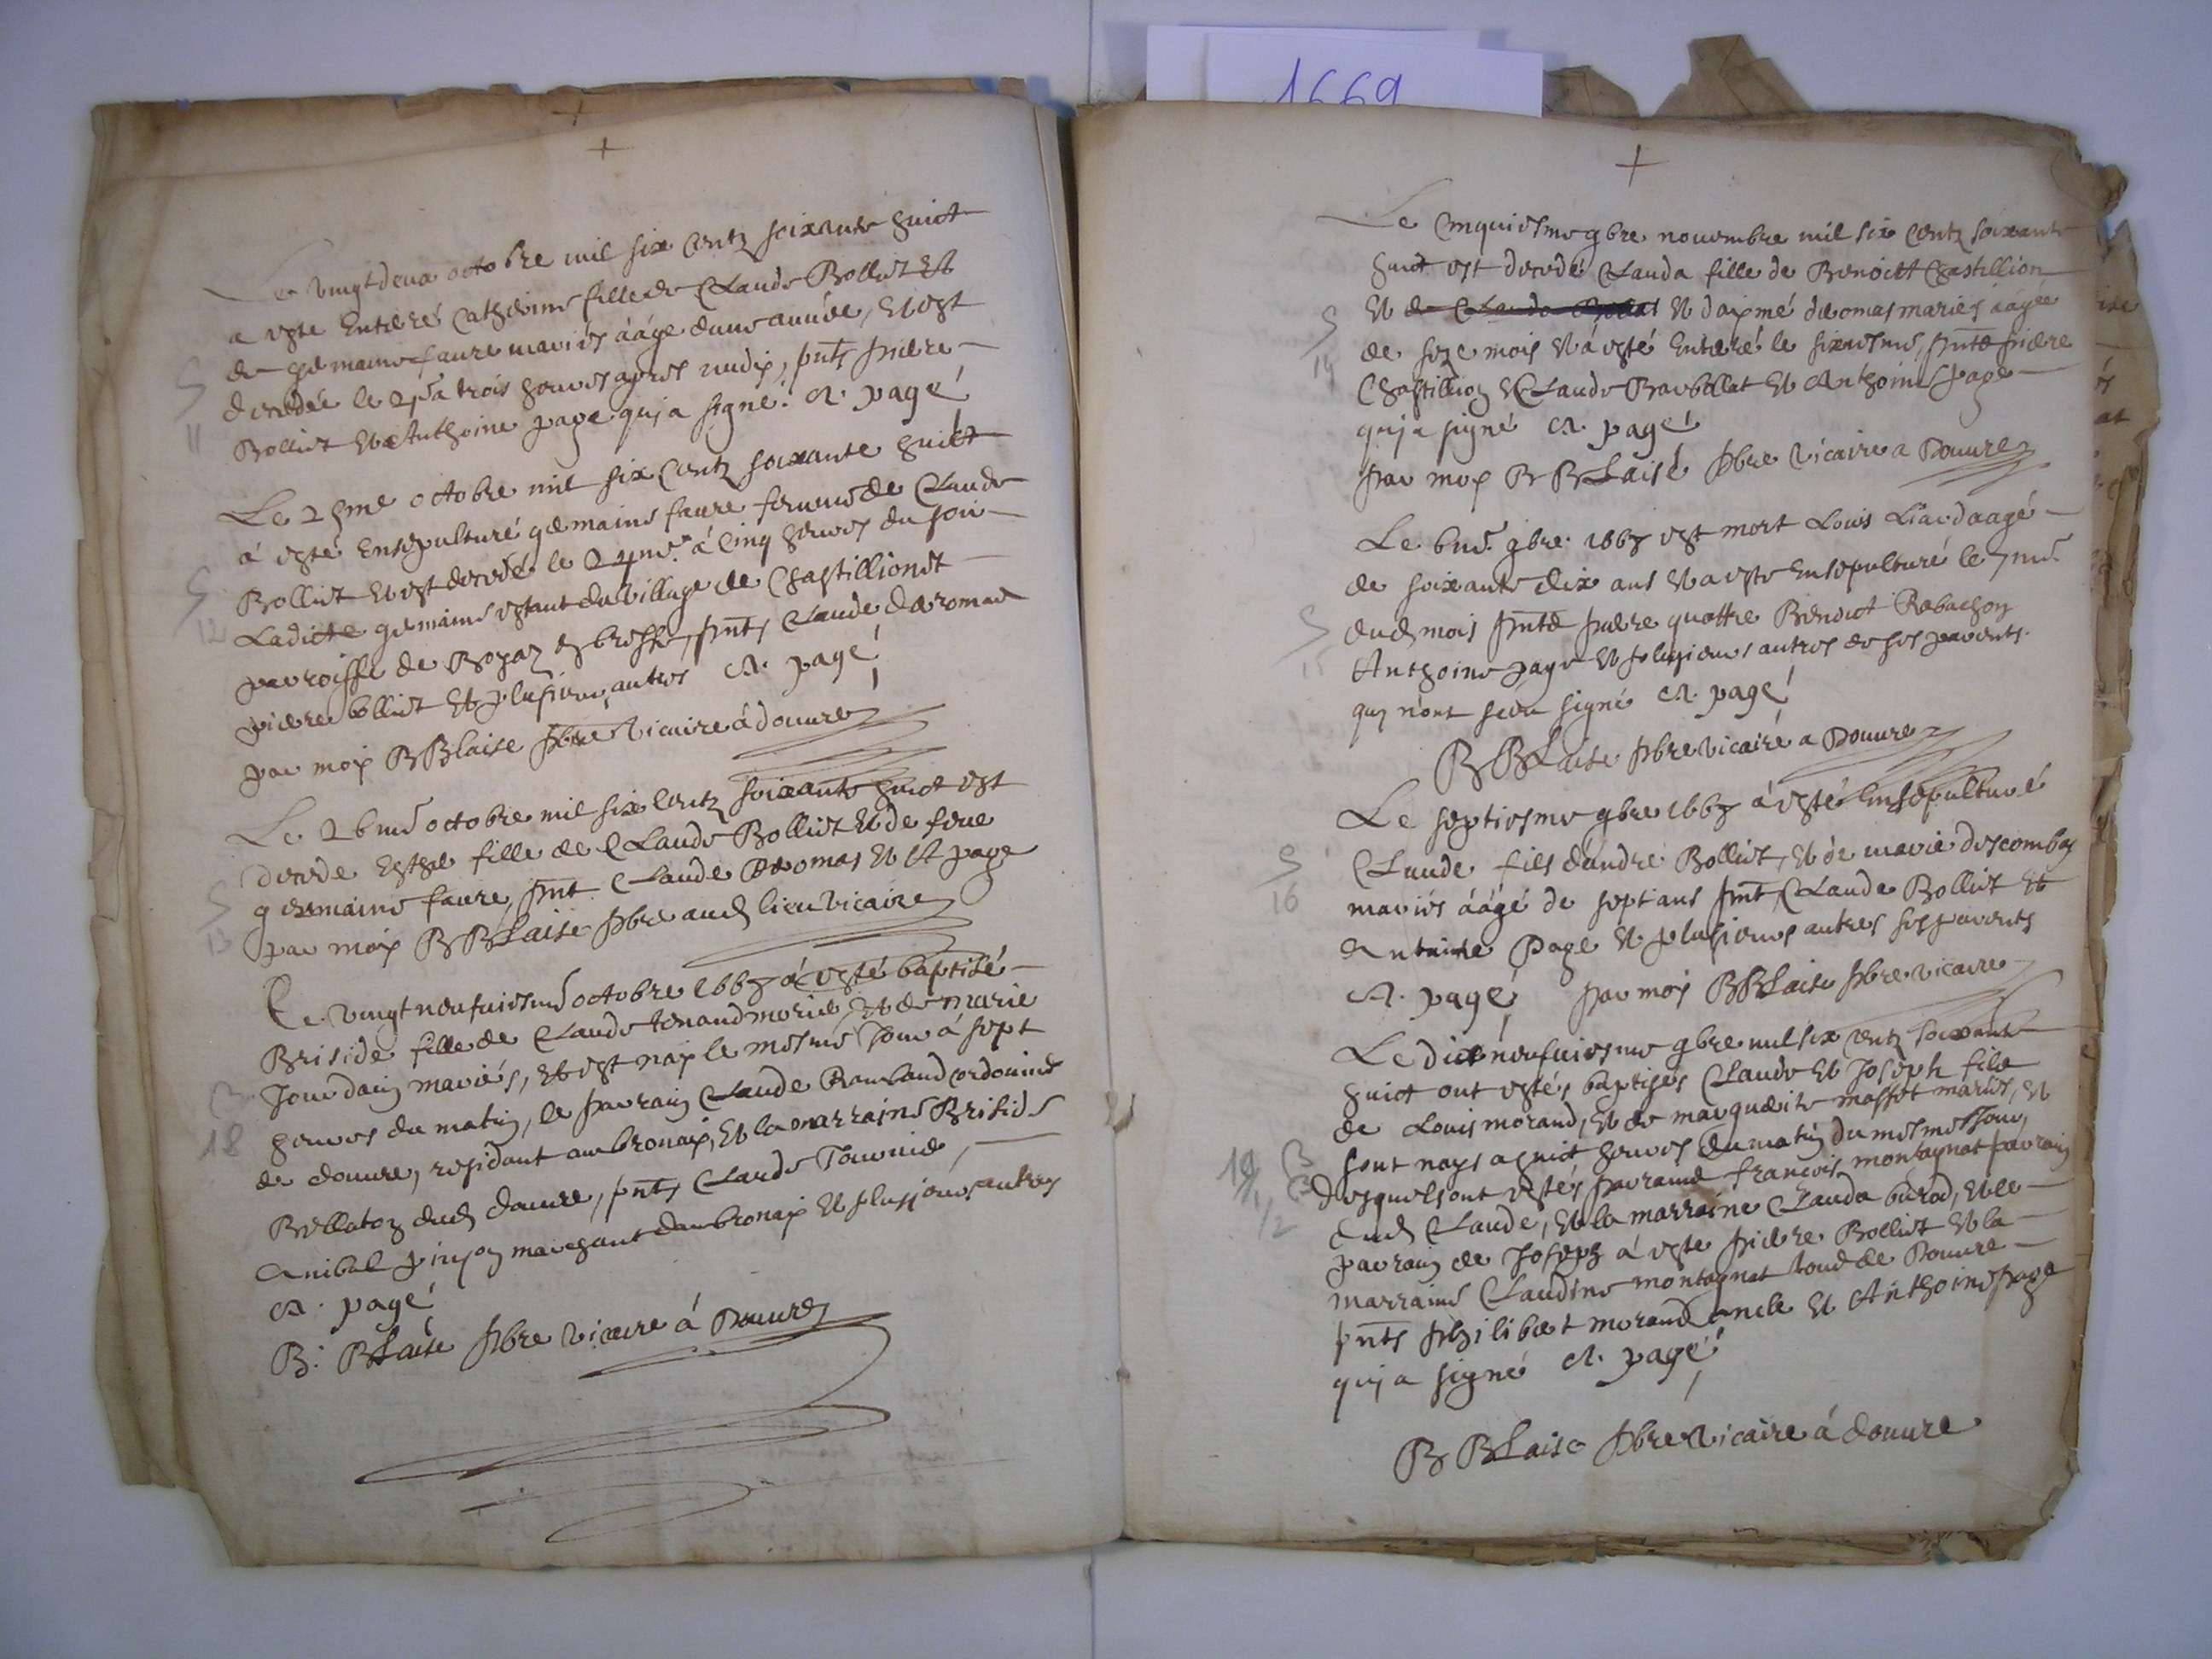 +
+
Le vingt deux octobre mil six Centz soixante huict
a este Enterré Catherine fille de Claude Bolliet Et
de germaine faure mariés áágé dune année, Et est
decedée le 21e a trois heures apres midy, pnts pierre
Bolliet Et Anthoine page quj a signé. A. pagé
S
11
Le 25me octobre mil six Centz soixante huict
á esté Ensepulturé germaine faure femme de Claude
Bolliet Et est decedé le 24me á Cinq heures du soir
Ladicte germaine estant du village de Chastillionet
parroisse de en bresse, pnts Claude deromas
pierre bolliet Et plusieurs autres A. pagé
par moy B Blaise pbre vicaire á douure
S
12
Le 26me octobre mil six Centz soixante huict est
decede Esther fille de Claude Bolliet Et de feue
germaine faure, pnt Claude deromas Et A page
par moy B Blaise pbre aud lieu vicaire
S
13
Le vingt neufuiesme octobre 1668 á esté baptisé
Briside fille de Claude tenand morier, Et de marie
Jourdain mariés, Et est nay le mesme Jour á sept
heures du matin, le parrain Claude Rambaud cordonnier
de douure, residant ambronay, Et la marraine Briside
Bellaton dud douure, pnts Claude Tournier,
Anibal pinson marchant dambronay Et plusieurs autres
A. pagé
B. Blaise pbre vicaire á Douure
B
18
1669
+
Le Cinquiesme 9bre nouembre mil six Centz soixante
huict est decedé Clauda fille de Benoict Chastillion
Et de Claude Et daymé deromas mariés áágée
de seze mois Et á esté Enterré le sixiesme, pnte pierre
Chastillion Claude Barbollat Et Anthoine page
quj a signé A. pagé
par moy B Blaise pbre vicaire a Douure
S
14
Le 6me 9bre 1668 est mort Louis Liard aagé
de soixante dix ans Et a este Ensepulturé le 7me
dud mois pnte pierre quattre Benoict Rebachon
Anthoine page Et plusieurs autres de ses parents
quj nont sceu signé A. pagé
B Blaise pbre vicaire a Douure
S
15
Le septiesme 9bre 1668 á esté Ensepulturé
Claude fils dandre Bolliet, Et de marie descombes
mariés áágé de sept ans pnt, Claude Bolliet Et
Antoine Page Et plusieurs autres ses parents
A. pagé par moy B Blaise pbre vicaire
S
16
Le dict neufuiesme 9bre mil six centz soixante
huict ont estés baptisés Claude Et Joseph filz
de Louis morand, Et de marguerite masset mariés, Et
sont nays a huict heures du matin du mesme Jour,
desquels ont estés parraine françois montagnat parrain
dud Claude, Et la marraine Clauda burod, Et le
parrain de Joseph á este pierre Bolliet Et la
marraine Claudine montagnat tous de Douure
pnts philibert morand oncle Et Anthoine page
quj a signé A. pagé
B Blaise pbre vicaire á douure
B
B
19
1/2